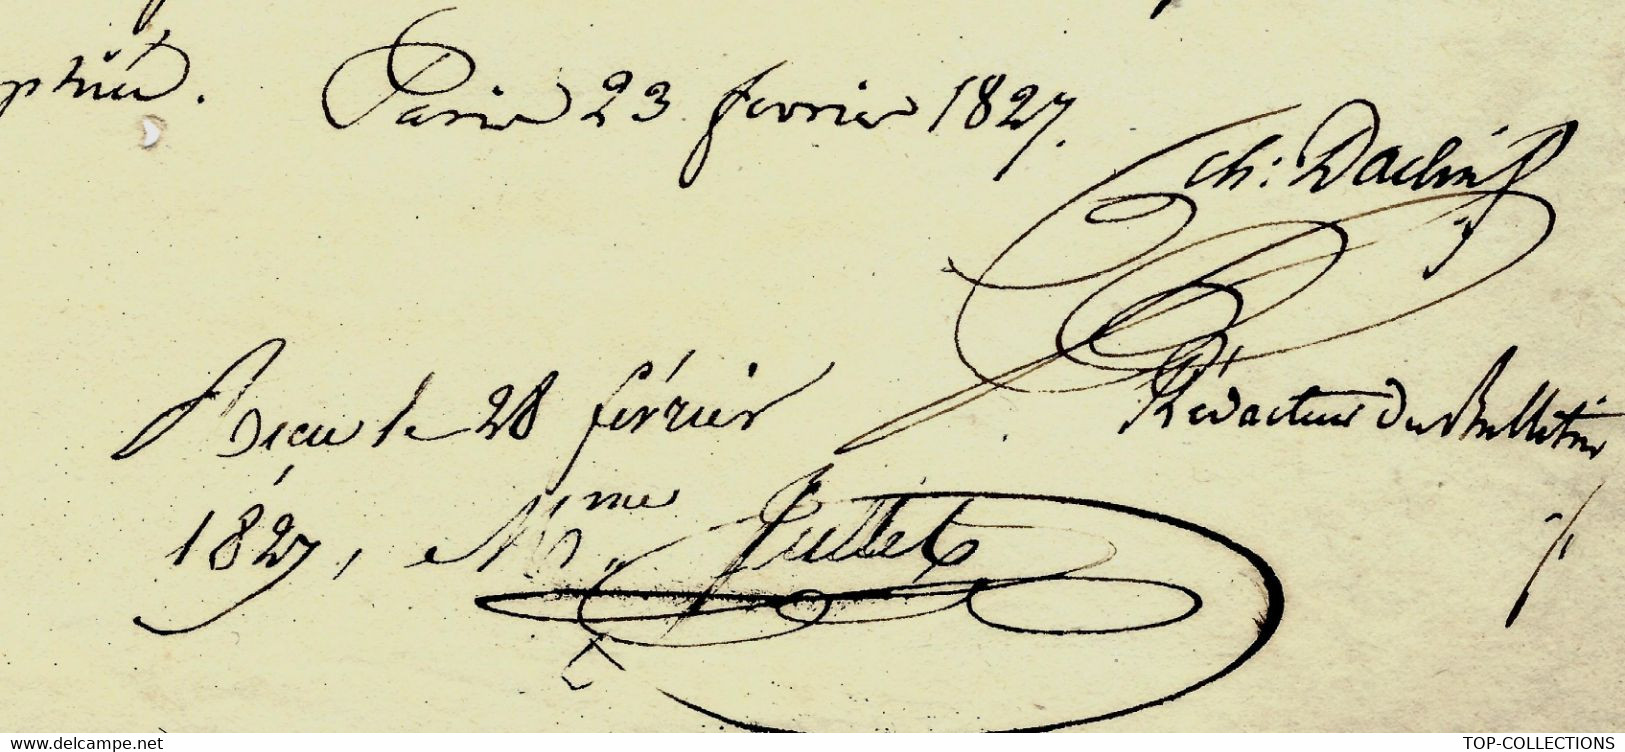 Paris 23 fevrier 1827.
ch: Dachin
Rédacteur du Bulletin
Reçu le 28 février
1827, Mme. Jullet
www.delcampe.net
TOP-COLLECTIONS